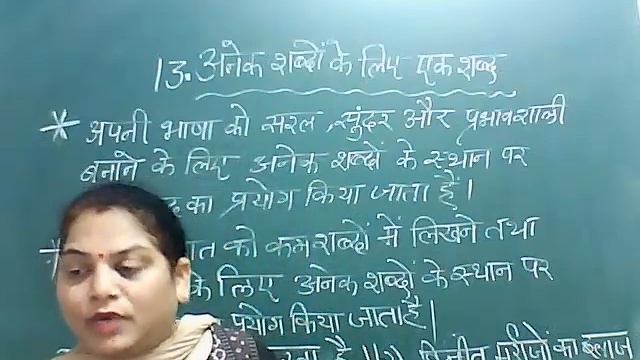 13. अनेक शब्दों के लिए एक शब्द
* अपनी भाषा को सरल, सुंदर और प्रभावशाली
बनाने के लिए अनेक शब्दों के स्थान पर
का प्रयोग किया जाता हैं।
* को कम शब्दों में लिखने तथा
के लिए अनेक शब्दों के स्थान पर
प्रयोग किया जाता है।
है का इलाज